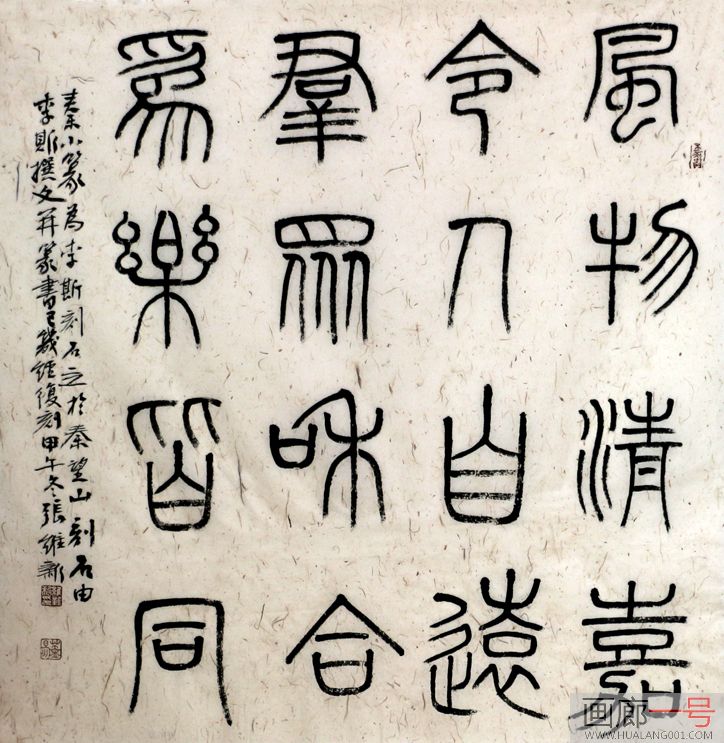 風物清嘉
令人自遠
羣眾咊合
爲樂皆同
秦小篆為李斯刻石立於秦望山刻石由
李斯撰文并篆書已幾經復刻甲午冬張維新
画廊一号
WWW.HUALANG001.COM